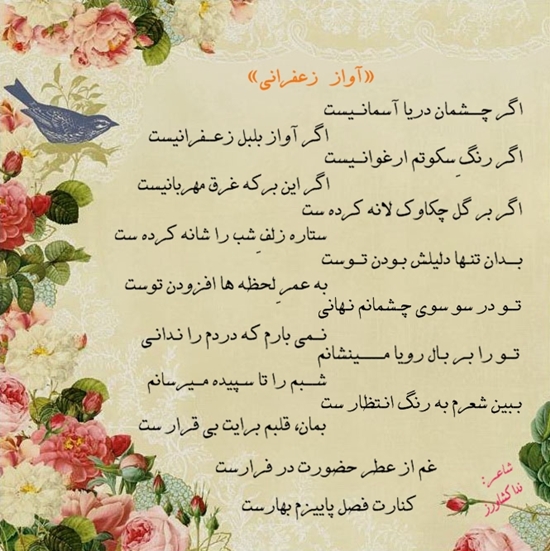 «آواز زعفرانی»
اگر چـــشمان دریا آسمانـیست
اگر آواز بلبل زعـفرانیست
اگر رنگِ سکوتم ارغوانـیست
اگر این برکه غرق مهربانیست
اگر بر گل چکاوک لانه کرده ست
ستاره زلفِ شب را شانه کرده ست
بـدان تنها دلیلش بـودن تـوست
به عمرِ لحظه ها افزودن توست
تـو در سو سوی چـشمانم نهانی
نـمی بارم که دردم را ندانی
تو را بر بال رویا مــینشانم
شـبم را تا سپیده مـیرسانم
ببین شعرم به رنگ انتظار ست
بمان، قلبم برایت بی قرار ست
غم از عطر حضورت در فرارست
کنارت فصل پاییزم بهارست
شاعر: